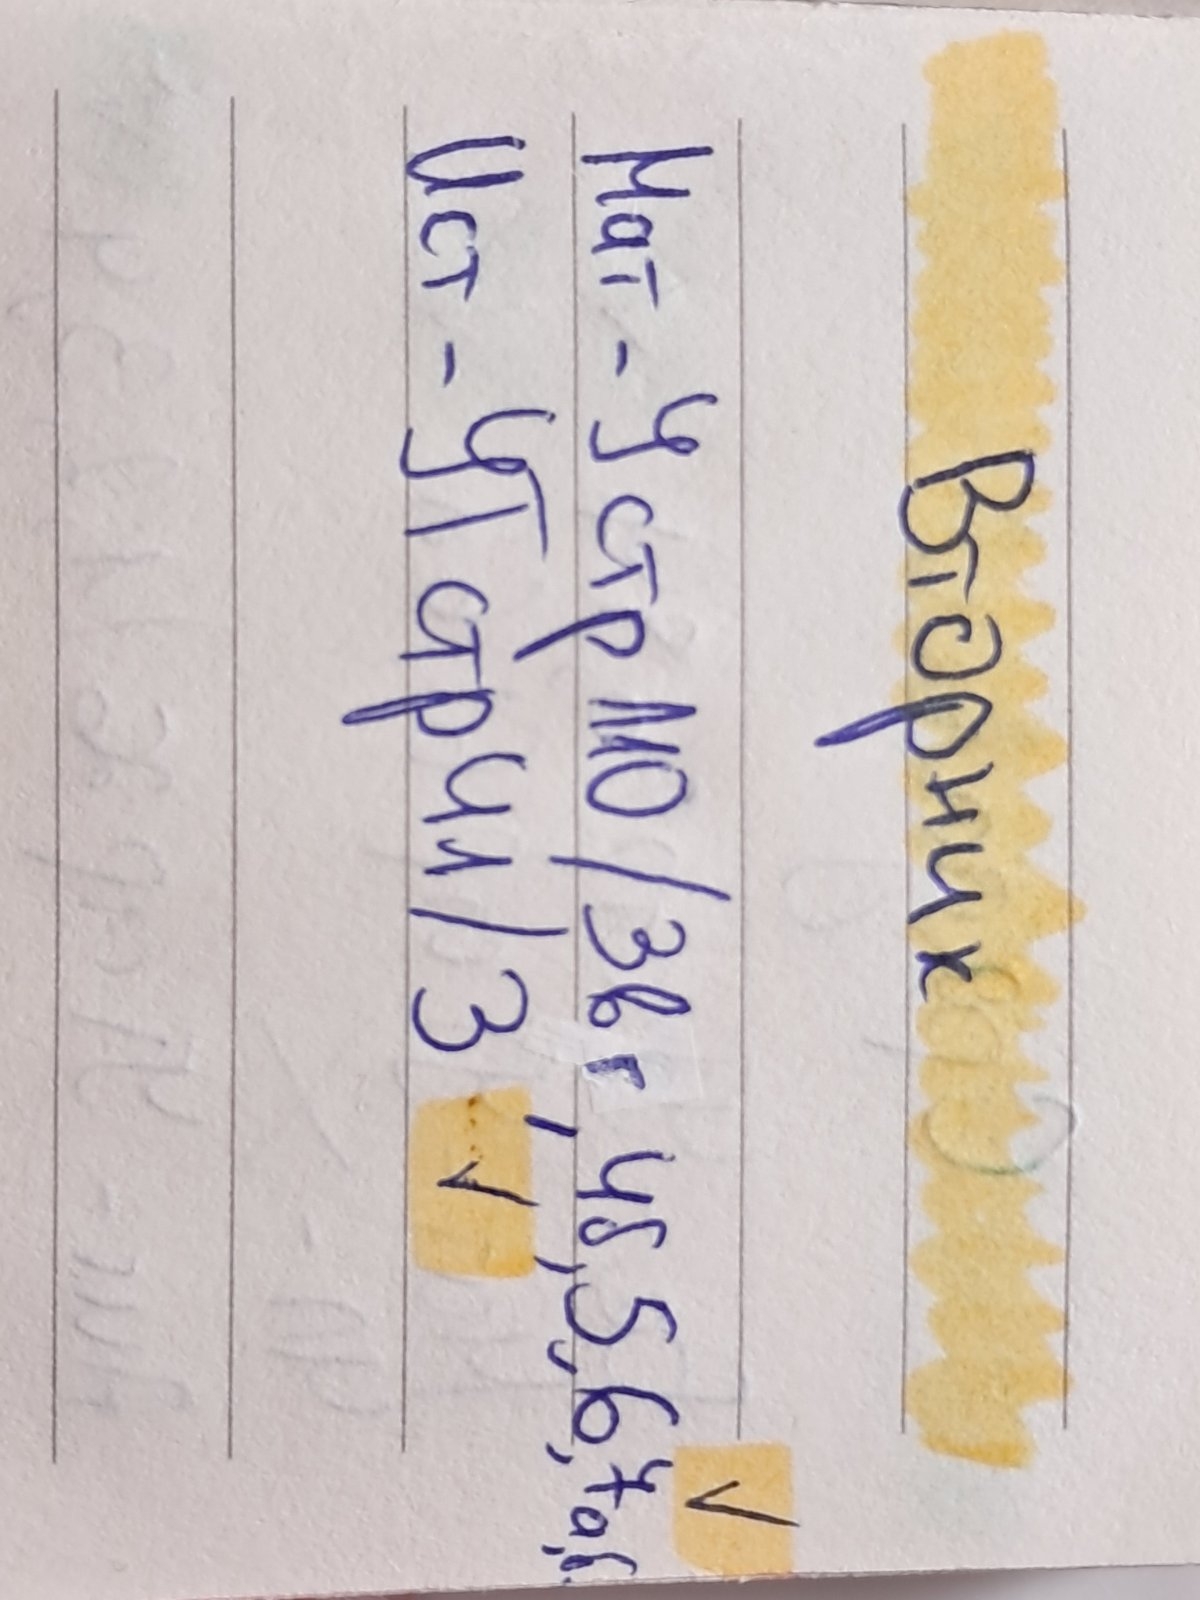 Вторник
Мат - У стр 110 / 3в г, 4б, 5, 6, 7а,б.
Ист - УП стр 41 / 3 ✓